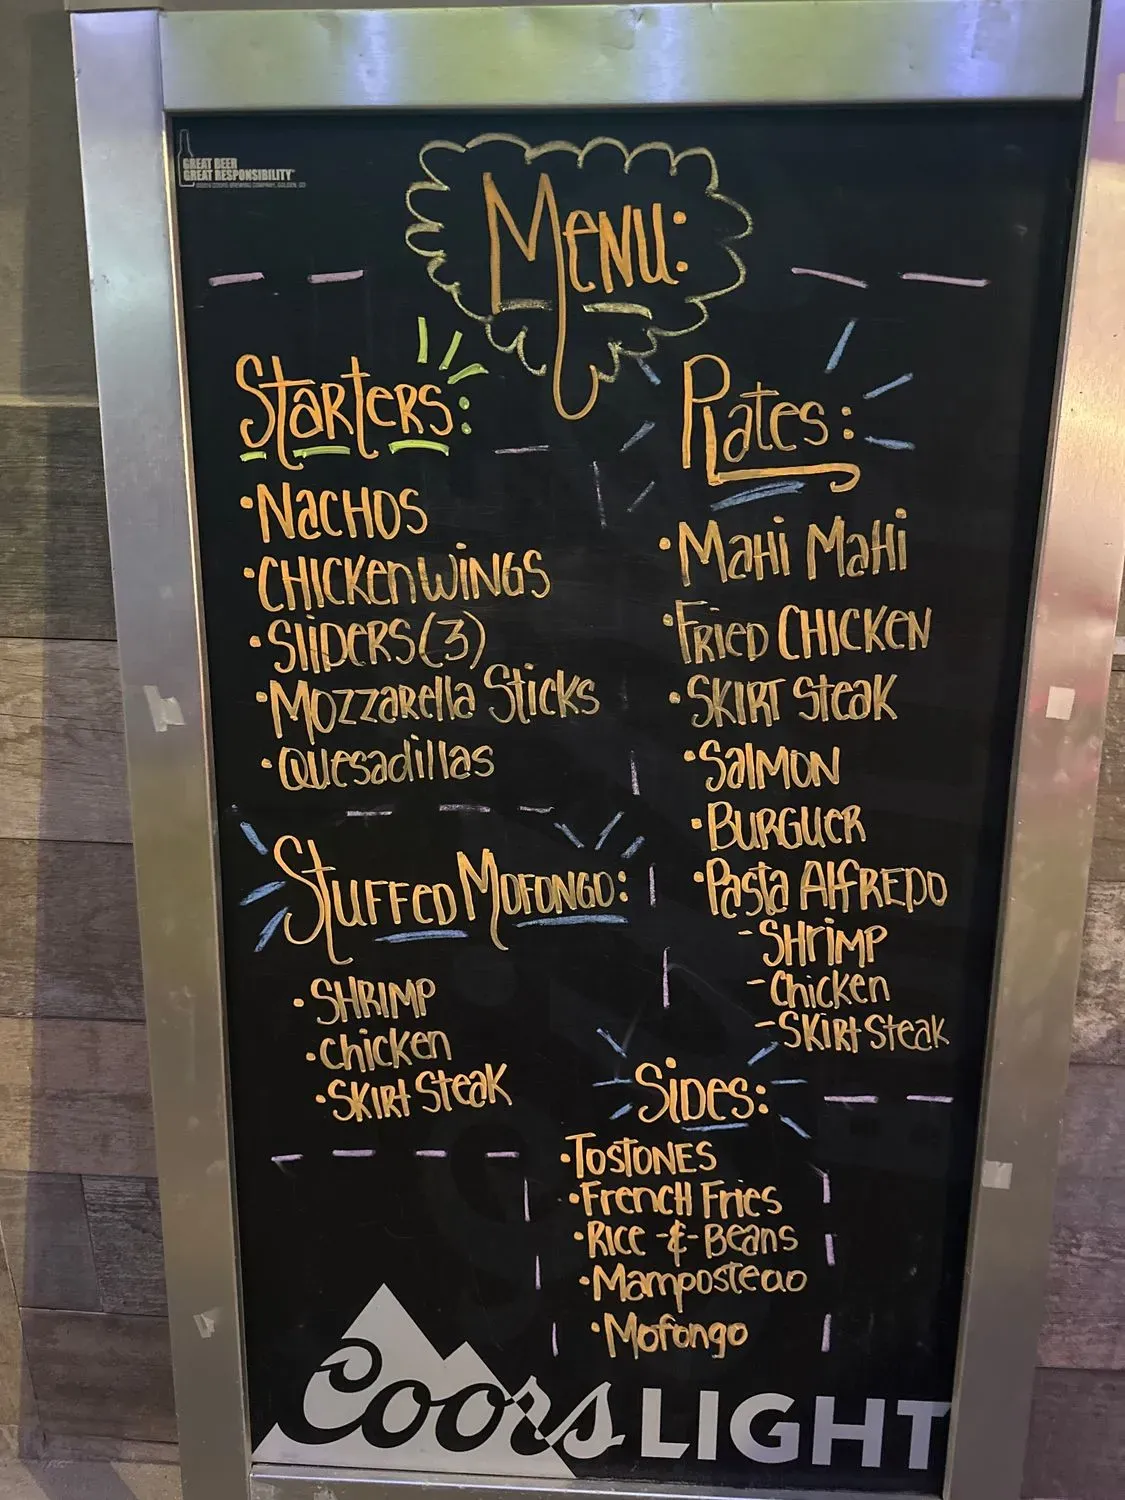 GREAT BEER
GREAT RESPONSIBILITY
MENU:
STARTERS:
• NACHOS
• CHICKEN WINGS
• SLIDERS (3)
• MOZZARElla Sticks
• Quesadillas
STUFFED MOFONGO:
• SHRIMP
• Chicken
• SKIRT STEAK
Plates:
• MAHI MAHI
• FRIED CHICKEN
• SKIRT STEAK
• SALMON
• BURGUER
• Pasta AlFREDO
- SHRIMP
- Chicken
- SKIRT STEAK
SIDES:
• TOSTONES
• FRENCH FRIES
• RICE -&- BEANS
• Mamposteao
• Mofongo
Coors LIGHT